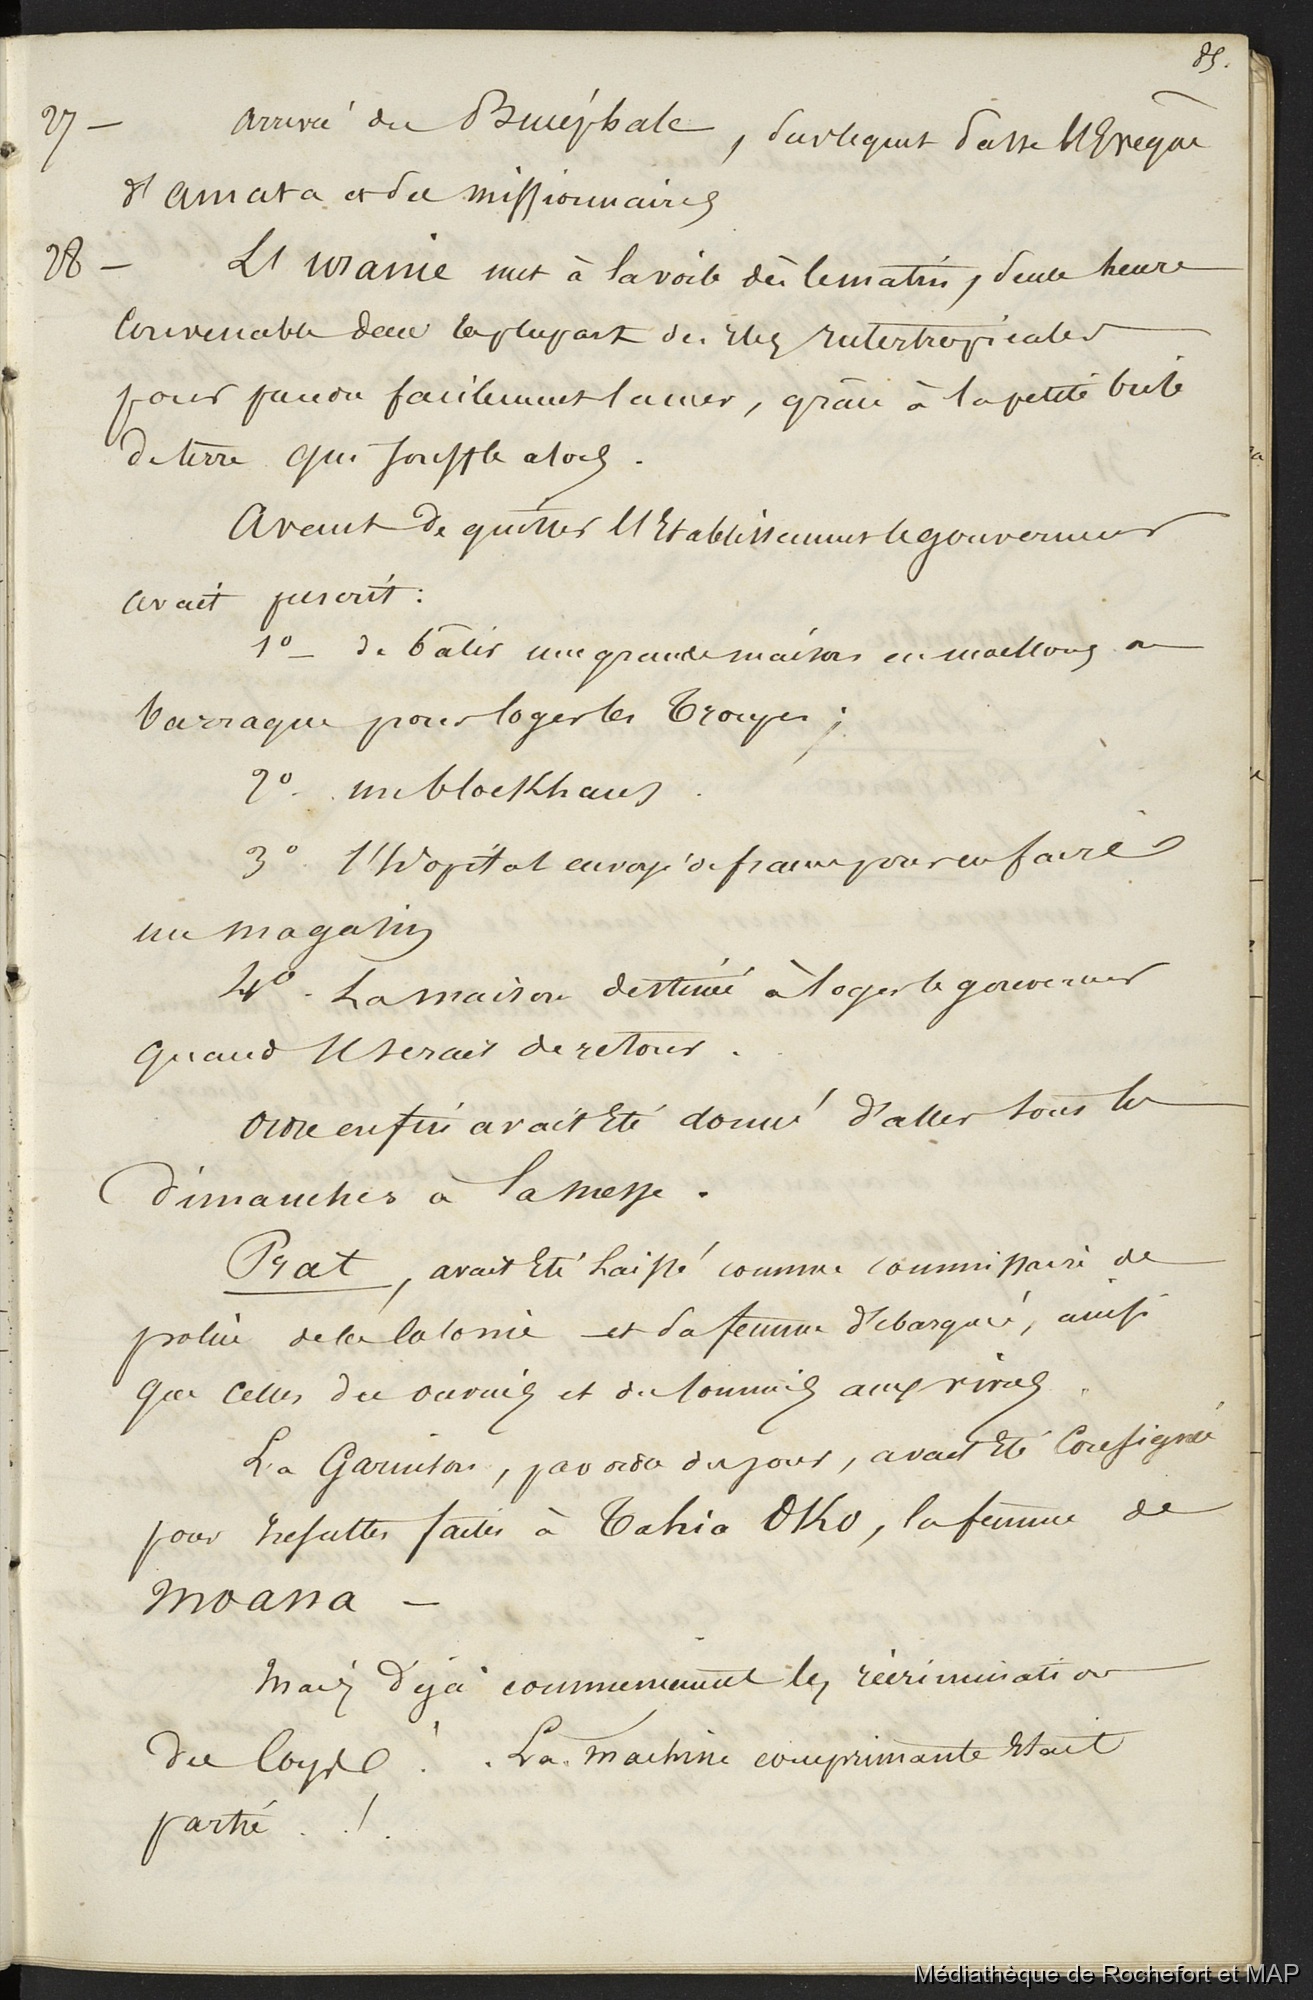 85.
27 — arrivée du Bucéphale, sur lequel passe l'Eveque
d'amata et des missionnaires
28 — L'Uranie met à la voile dès le matin, seule heure
convenable dans la plupart des iles intertropicales
pour prendre facilement la mer, grâce à la petite brise
de terre qui souffle alors.
Avant de quitter l'Etablissement le gouverneur
avait prescrit :
1º — de bâtir une grande maison en moellons ou
barraque pour loger les Troupes ;
2º. un blockhaus.
3º. l'hopital envoyé de france pour en faire
un magasin
4º. La maison destinée à loger le gouverneur
quand Il serait de retour.
ordre enfin avait été donné d'aller tous les
dimanches à la messe.
Prat, avait été laissé comme commissaire de
police de la colonie et sa femme débarquée, ainsi
que celles des ouvriers et des commis aux vivres.
La Garnison, par ordre du jour, avait été consignée
pour insultes faites à Tahia Oko, la femme de
Moana —
Mais déjà commencement les récrimination
de Coyde ! . La machine comprimante était
partie . . ! .
Médiathèque de Rochefort et MAP